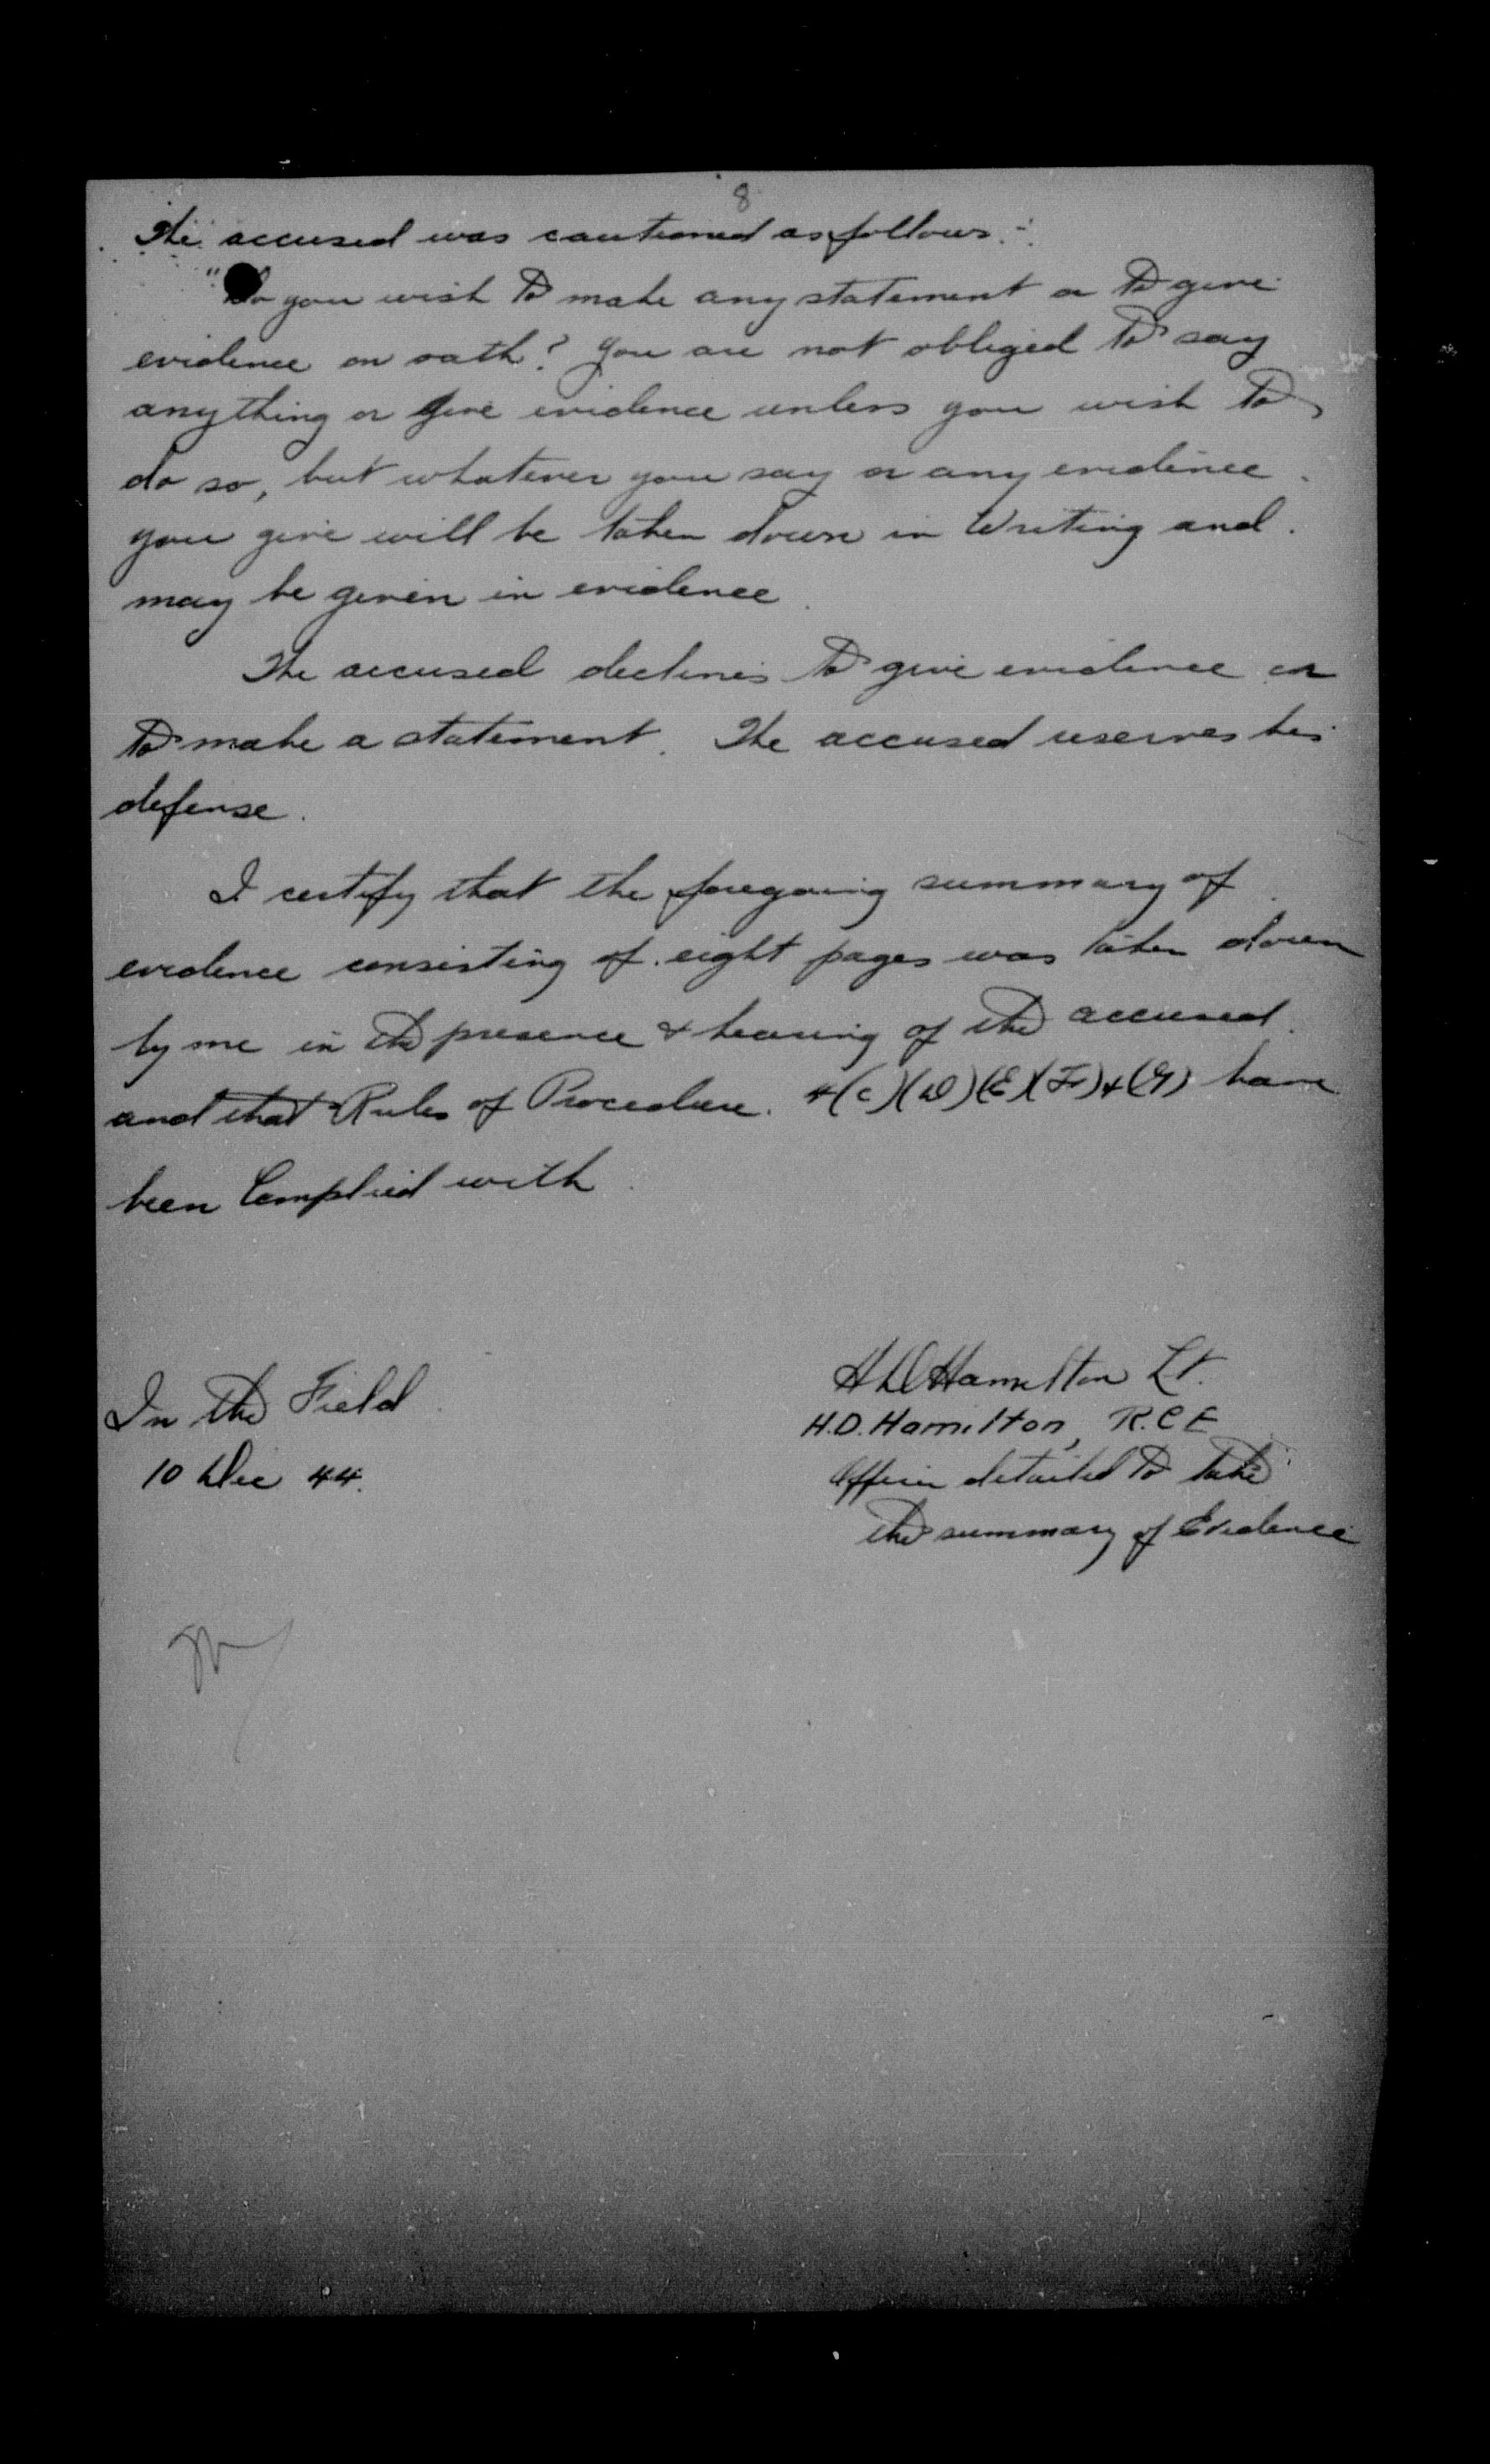 8
The accused was cautioned as follows:-
"Do you wish to make any statement or to give
evidence on oath? You are not obliged to say
anything or give evidence unless you wish to
do so, but whatever you say or any evidence
you give will be taken down in Writing and
may be given in evidence
The accused declines to give evidence or
to make a statement. The accused reserves his
defense.
I certify that the foregoing summary of
evidence consisting of eight pages was taken down
by me in the presence & hearing of the accused
and that Rules of Procedure. 4(C)(D)(E)(F)&(G) have
been Complied with
In the Field
10 Dec 44.
HD Hamilton Lt.
H.D. Hamilton, R.C.E
Officer detailed to take
the summary of Evidence